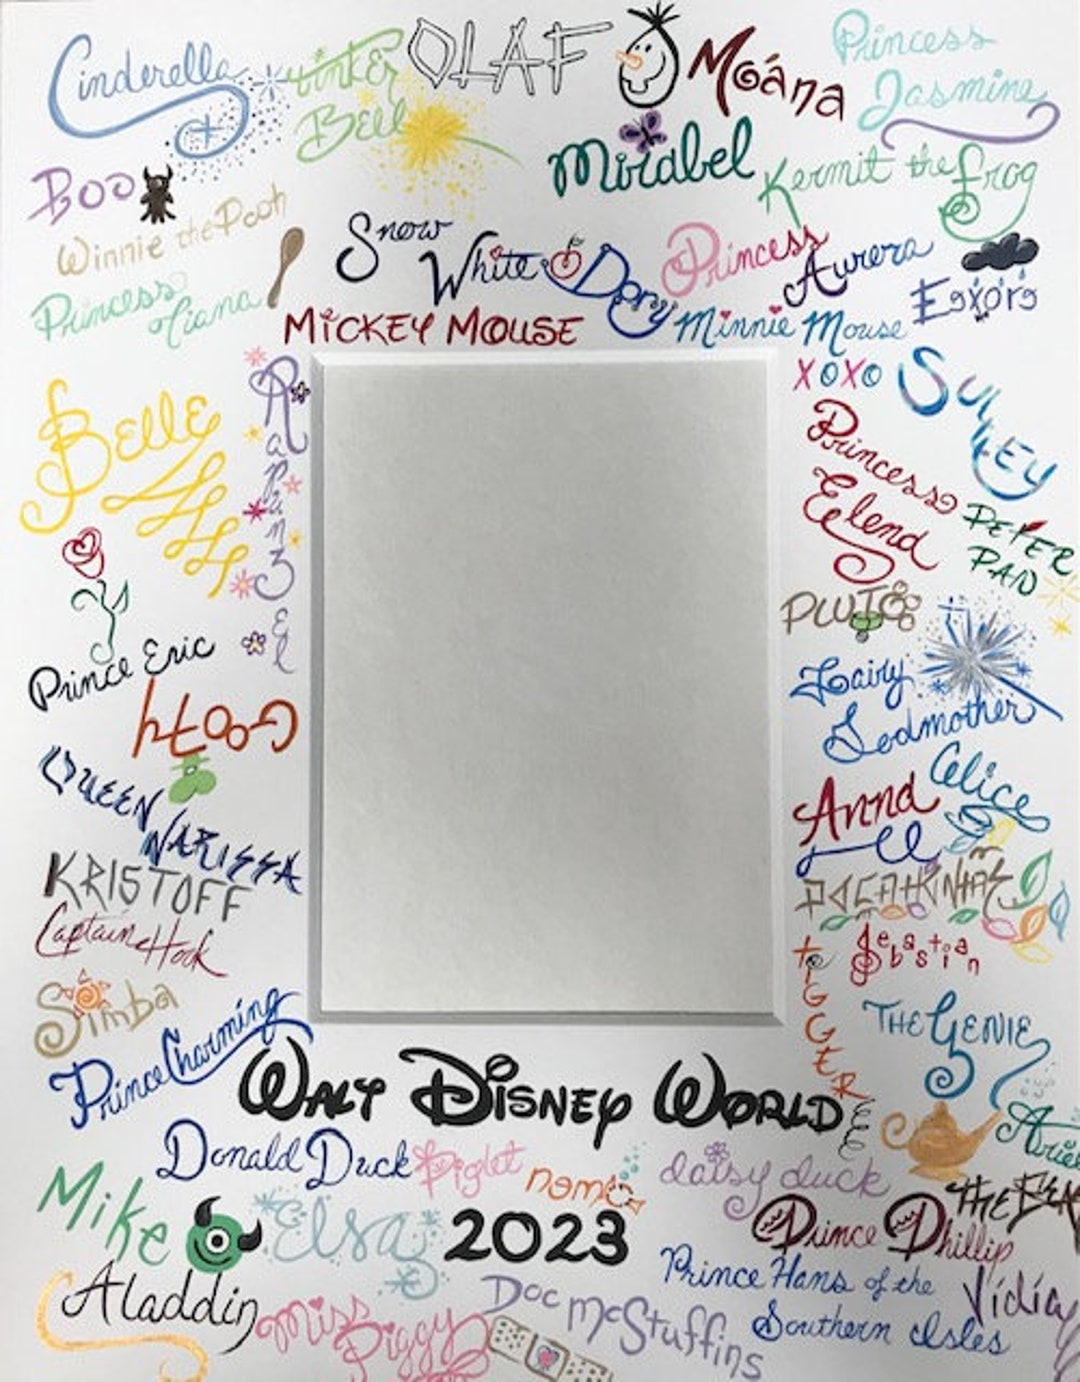 Cinderella
Tinker
Bell
OLAF
Moana
Princess
Jasmine
Boo
Mirabel
Kermit the frog
Winnie the Pooh
Snow
White
Dory
Princess
Aurora
Princess
Tiana
MICKEY MOUSE
Minnie Mouse
Eeyore
Belle
Rapunzel
XOXO
SULLEY
Princess
Elena
PETER
PAN
PLUTO
Prince Eric
Goofy
Fairy
Godmother
QUEEN
NARISSA
Anna
Alice
KRISTOFF
POCAHONTAS
Captain Hook
TIGGER
Sebastian
Simba
THE GENIE
Prince Charming
WALT DISNEY WORLD
Ariel
Donald Duck
Piglet
nemo
daisy duck
Mike
Elsa
2023
Prince Phillip
THE
Aladdin
Miss
Piggy
Doc McStuffins
Prince Hans of the
Southern Isles
Vidia